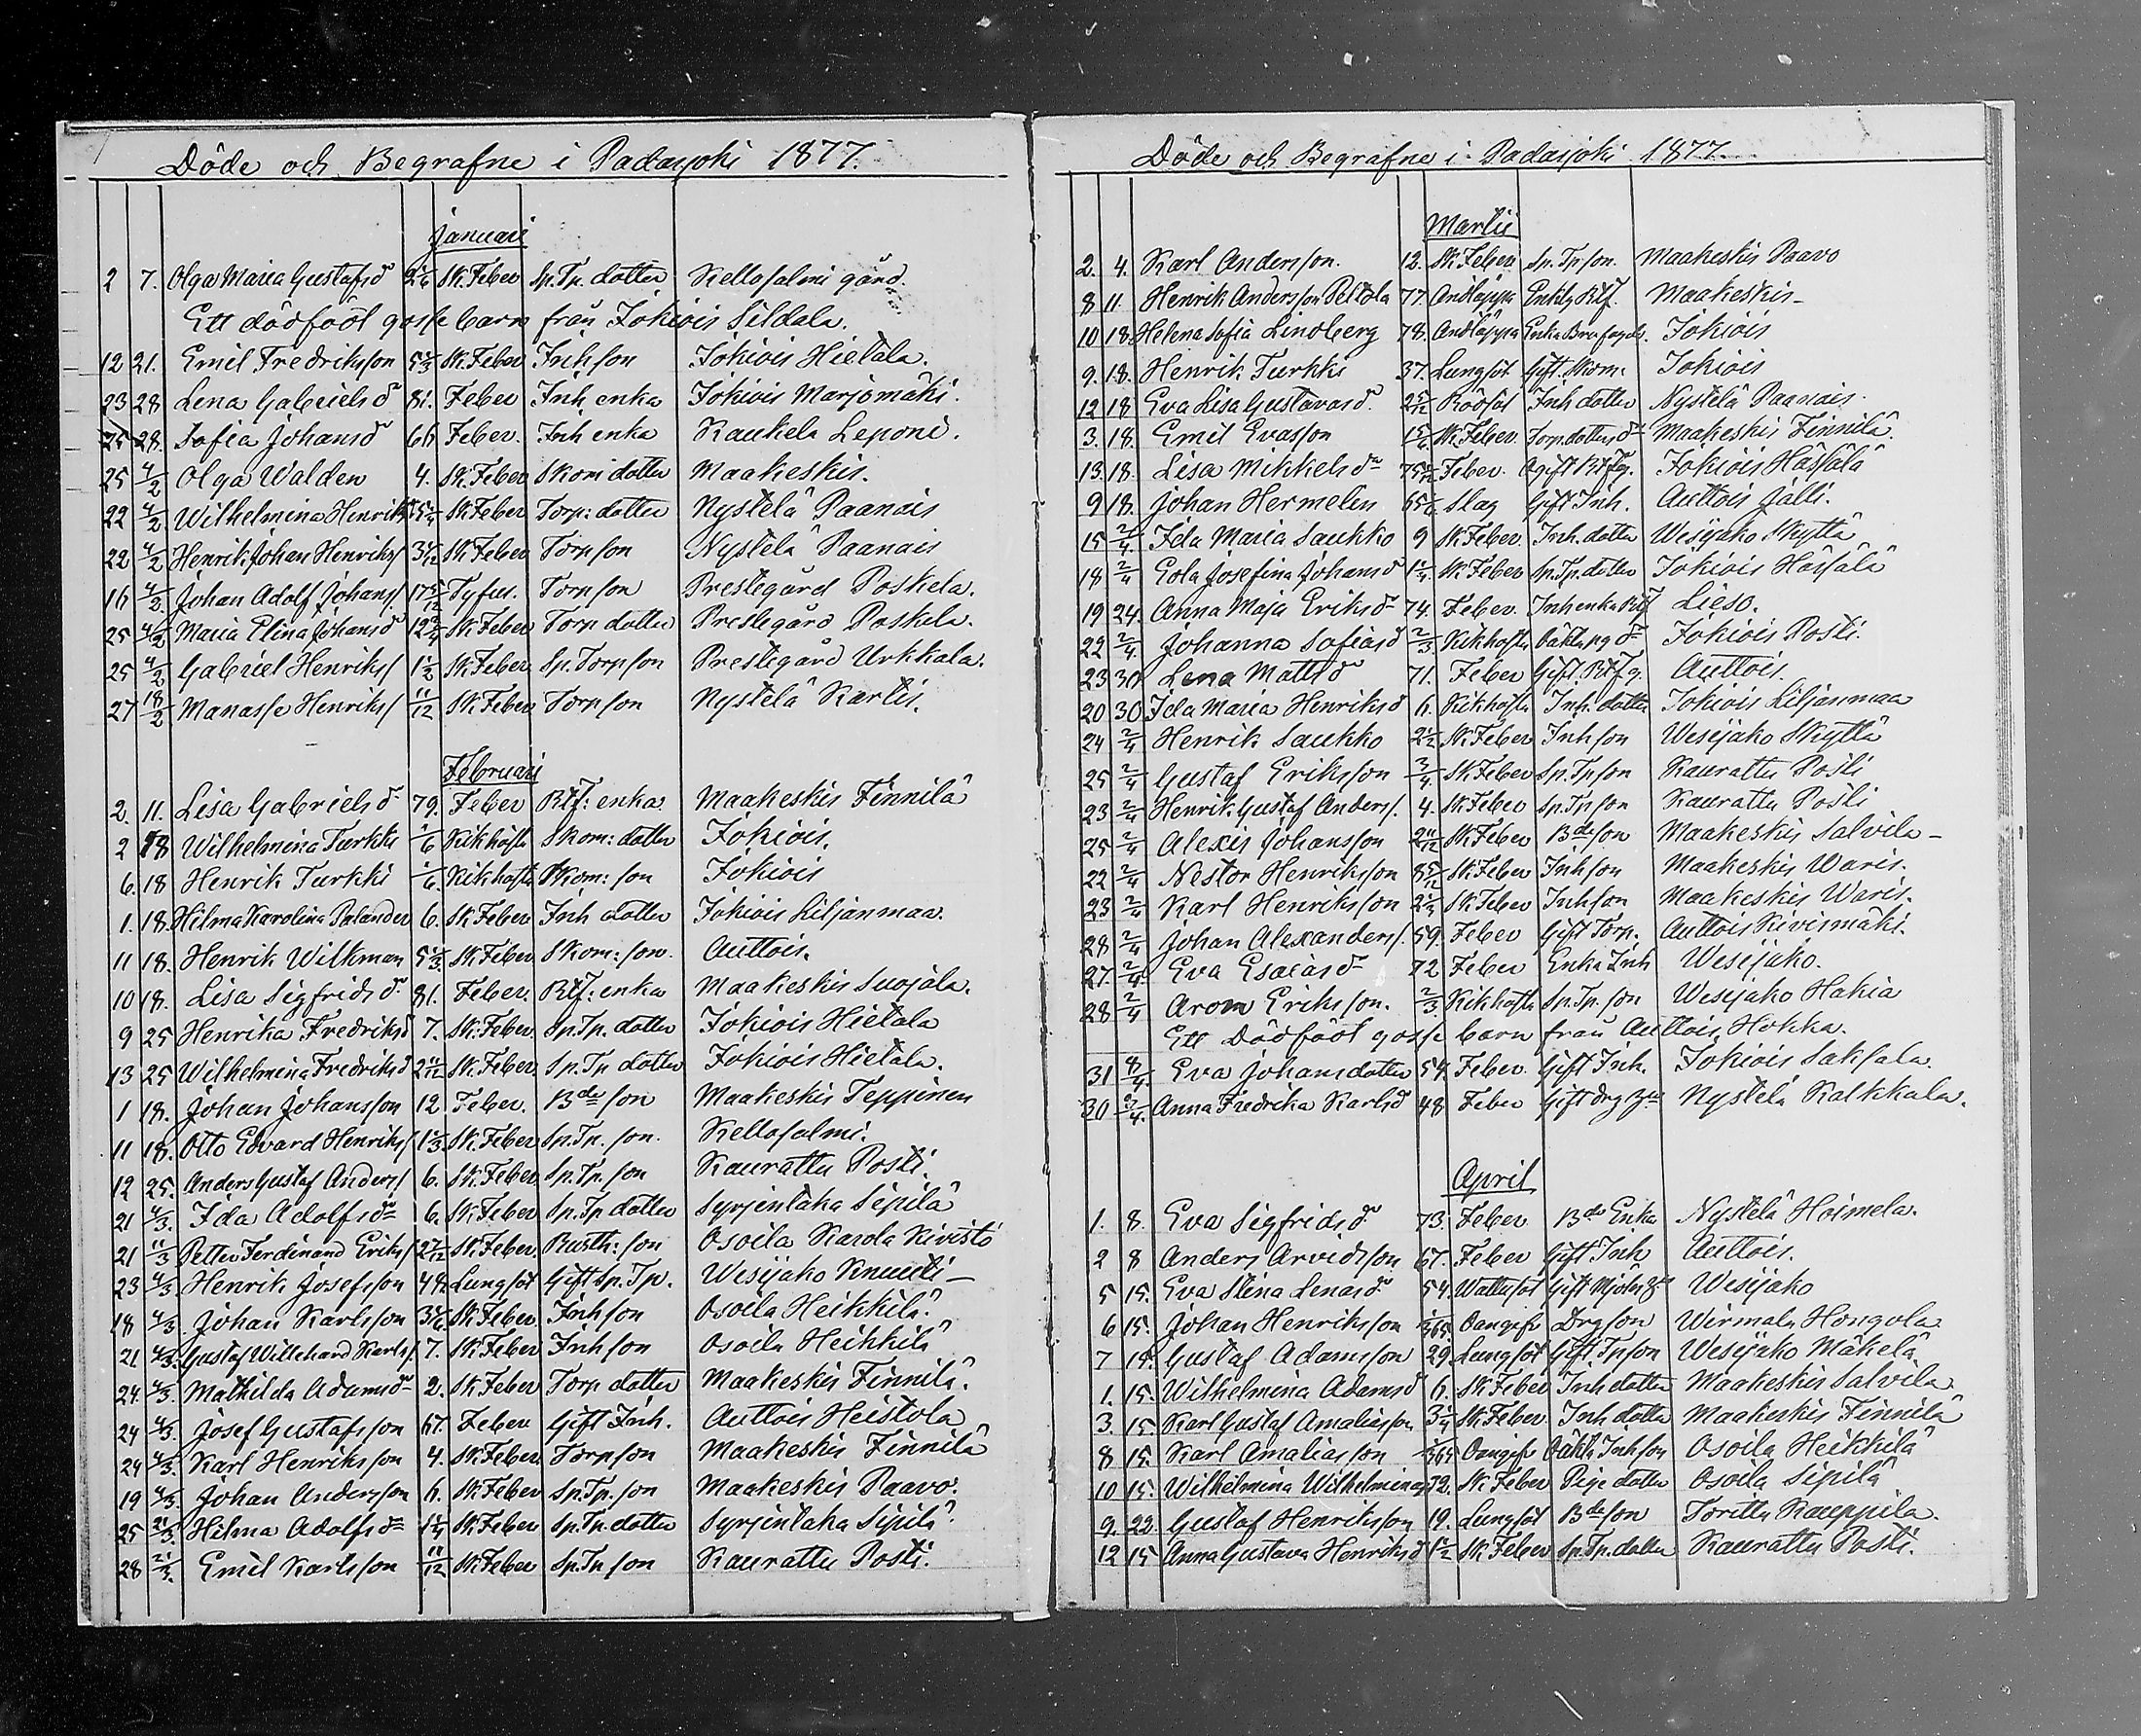 Döde och Begrafne i Padasjoki 1877.
Januari
2 7. Olga Maria Gustafsd Sk. Feber Sp. Tp. dotter Kellosalmi gård.
Ett dödfödt gosse barn från Jokiois Sildala.
12 21. Emil Fredriksson 5 1/3 Sk. Feber Inh son Jokiois Hietala.
23 28 Lena Gabrielsd 81. Feber Inh enka Jokiois Marjomäki.
25 28. Sofia Johansd 66 Feber. Inh enka Kaukela Leponi.
25 4/2 Olga Walden 4. Sk. Feber Skom dotter Maakeskis.
22 4/2 Wilhelmina Henriksd Sk Feber Torp: dotter Nystelä Paanais
22 4/2 Henrik Johan Henrikss Sk. Feber Torp son Nystelä Paanais
16 4/2. Johan Adolf Johanss. 17 5/12 Tyfus. Torp son Prestegård Poskela.
25 4/2 Maria Elina Johansd Sk Feber Torp dotter Prestegård Poskela.
25 4/2 Gabriel Henrikss 1 1/2 Sk Feber Sp. Torp son Prestegård Urkkala.
27 18/2 Manasse Henrikss 11/12 Sk. Feber Torp son Nystelä Kartis.
Februari
2. 11. Lisa Gabrielsd 79. Feber Rtf: enka Maakeskis Finnilä
2 18 Wilhelmina Turkki 1/6 Kikhosta Skom: dotter Jokiois.
6. 18 Henrik Turkki 1/6. Kikhosta Skom: son Jokiois
1. 18. Hilma Karolina Palander 6. Sk. Feber Inh dotter Jokiois Liljanmaa.
11 18. Henrik Wilkman 5 1/3. Sk. Feber Skom: son. Auttois.
10 18. Lisa Sigfridsd 81. Feber. Rtf: enka Maakeskis Suojala.
9 25 Henrika Fredriksd 7. Sk. Feber. Sp. Tp. dotter Jokiois Hietala
13 25 Wilhelmina Fredriksd 2 11/12 Sk. Feber. Sp. Tp dotter Jokiois Hietala.
1 18. Johan Johansson 12 Feber. Bde son Maakeskis Teppinen
11 18. Otto Edvard Henrikss. 1 1/3. Sk. Feber. Sp. Tp. son. Kellosalmi.
12 25. Anders Gustaf Anderss 6. Sk. Feber. Sp. Tp. son Kaurattu Posti.
21 4/3. Ida Adolfsd 6. Sk. Feber Sp. Tp dotter Syrjentaka Sipilä
21 11/3 Petter Ferdinand Erikss Sk Feber. Rusth: son Osoila Karola Kivistö
23 4/3 Henrik Josefsson 48. Lungsot Gift Sp. Tp. Wesijako Knuuti
18 4/3 Johan Karlsson Sk. Feber. Inh son Osoila Heikkilä.
21 4/3. Gustaf Willehard Karlss. 7. Sk. Feber Inh son Osoila Heikkilä
24. 4/3. Mathilda Adamsd 2. Sk. Feber Torp dotter Maakeskis Finnilä.
24 4/3. Josef Gustafsson 67. Feber Gift Inh. Auttois Heistola
24 4/3. Karl Henriksson 4. Sk. Feber Torp son Maakeskis Finnilä
19 4/3. Johan Andersson 6. Sk. Feber Sp. Tp. son Maakeskis Paavo.
25 21/3. Hilma Adolfsd 1 1/4 Sk Feber Sp. Tp. dotter Syrjentaka Sipilä
28 21/3. Emil Karlsson 11/12 Sk. Feber Sp. Tp son Kaurattu Posti.
Döde och Begrafne i Padasjoki 1877.
Martii
2. 4. Karl Andersson. 12. Sk Feber Sp. Tp son. Maakeskis Paavo
8 11. Henrik Andersson Peltola 77. Andtäppa Enkling Rtf. Maakeskis
10 18. Helena Sofia Lindberg 78. Andtäppa Enka Jokiois
9. 18. Henrik Turkki 37. Lungsot Gift. Skom: Jokiois
12 18 Eva Lisa Gustavasd. Rödsot Inh dotter Nystelä Paanais.
3. 18. Emil Evasson Sk. Feber. Torp. dotters d Maakeskis Finnilä.
13. 18. Lisa Mikkelsd Feber. Ogift Jokiois Hässälä
9 18. Johan Hermelin Slag Gift Inh. Auttois Jälli.
15 2/4. Ida Maria Saukko 9 Sk. Feber. Inh. dotter Wesijako Skyttä
18 2/4 Eola Josefina Johansd 1 1/4. Sk. Feber Sp. Tp. dotter Jokiois Hässälä
19 24. Anna Maja Eriksd 74. Feber. Inh enka Rtf Lieso.
22 2/4. Johanna Sofiasd 2/3 Kikhosta Oäkta Jokiois Posti.
23 30 Lena Mattsd 71. Feber Gift. Auttois.
20 30 Ida Maria Henriksd 6. Kikhosta Inh. dotter Jokiois Liljanmaa
24 2/4 Henrik Saukko 2 1/2 Sk. Feber Inh son Wesijako Skyttä
25 2/4 Gustaf Eriksson 3/4. Sk Feber Sp. Tp son Kaurattu Posti
23 2/4 Henrik Gustaf Anderss. 4. Sk. Feber Sp. Tp son Kaurattu Posti
25 2/4 Alexis Johansson 2 11/12 Sk. Feber Bde son Maakeskis Salvila
22 2/4 Nestor Henriksson 8 5/12 Sk. Feber Inh son Maakeskis Waris.
23 2/4 Karl Henriksson Sk Feber Inh son Maakeskis Waris.
28 2/4 Johan Alexanderss. 59. Feber Gift Torp. Auttois Kivismäki.
27. 2/4 Eva Esaiasd 72 Feber Enka Inh Wesijako.
28 2/4 Arom Eriksson. 2/3. Kikhosta Sp. Tp. son Wesijako Hakia
Ett Dödfödt gosse barn från Auttois Hokka.
31 8/4. Eva Johansdotter 54. Feber. Gift Inh. Jokiois Saksala.
30 Anna Fredrika Karlsd 48 Feber Gift Nystelä Kalkkala.
April
1. 8. Eva Sigfridsd 73. Feber Bde Enka Nystelä Hoimela.
2 8 Anders Arvidsson 67. Feber Gift Inh Auttois.
5 15. Eva Stina Lenasd 54. Wattusot Gift Wesijako
6 15. Johan Henriksson Oangifv Drg son Wirmala Hongola
7 18. Gustaf Adamsson 29. Lungsot Gift. Tp son Wesijako Mäkelä
1. 15. Wilhelmina Adamsd 6. Sk. Feber Inh dotter Maakeskis Salvila
3. 15 Karl Gustaf Amaliasson Sk. Feber. Inh dotter Maakeskis Finnilä
8 15. Karl Amaliasson Oangifv Oäkta Inh son Osoila Heikkilä
10 15. Wilhelmina Wilhelminasd Sk Feber Pige dotter Osoila Sipilä
9. 22. Gustaf Henriksson 19. Lungsot Bde son Toritta Kauppila.
12 15 Anna Gustava Henriksd 1 1/2 Sk Feber Sp. Tp. dotter Kaurattu Posti.